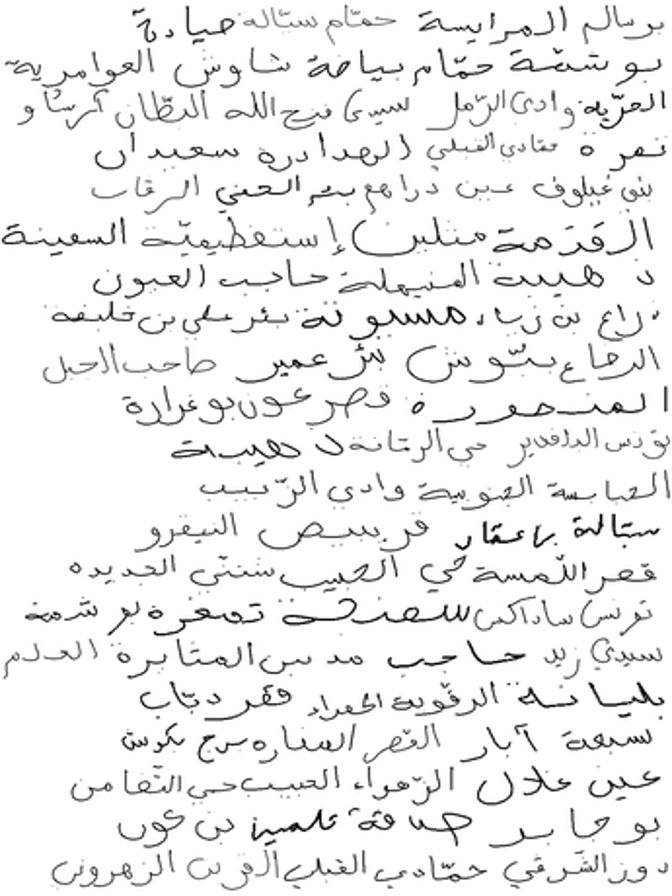 برسالم المرايسة حمّام ستّالة صيادة
بوشنّة حمّام بياضة شاوش العوامرية
الحرّية وادي الرّمل سيدي فتح الله البطّان
نفزة الهدادرة سعيدان
بني غيلوف عين دراهم بئر الحفي الرقاب
القزمة منليف السفينة
ذهيبة المنيهلة حاجب العيون
ذراع بن زياد مسيوتة بئر علي بن خليفة
الرضاع بنّوش بئر عمير صاحب الجبل
المنصورة قصر عون بوغرارة
تونس البلفدير حي الرمّانة ذهيبة
العبابسة الجنوبية وادي الزّيت
ستالة براعقار فريسيس النيفرو
قصر اللّمسة حي الحبيب شنني الجديدة
تونس ساداكس تمغزة بو شرمة
سيدي زيد حاجب المثابرة العلام
بليانة الرڨوبة الحمراء قصر دبّاب
سبعة آبار القصر المنارة برج بكوش
عين علال الزّهراء الحبيب حي التّضامن
بوجابر صدقة تلميز بن عون
دوز الشرقي حمّادي القبلي الزهروني